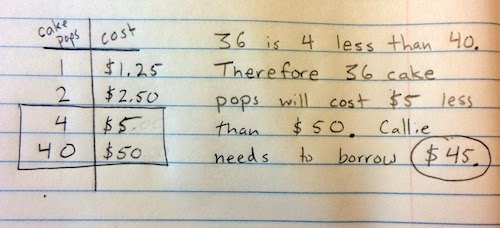 cake pops | cost
1 | $1.25
2 | $2.50
4 | $5
40 | $50
36 is 4 less than 40.
Therefore 36 cake
pops will cost $5 less
than $50. Callie
needs to borrow $45.